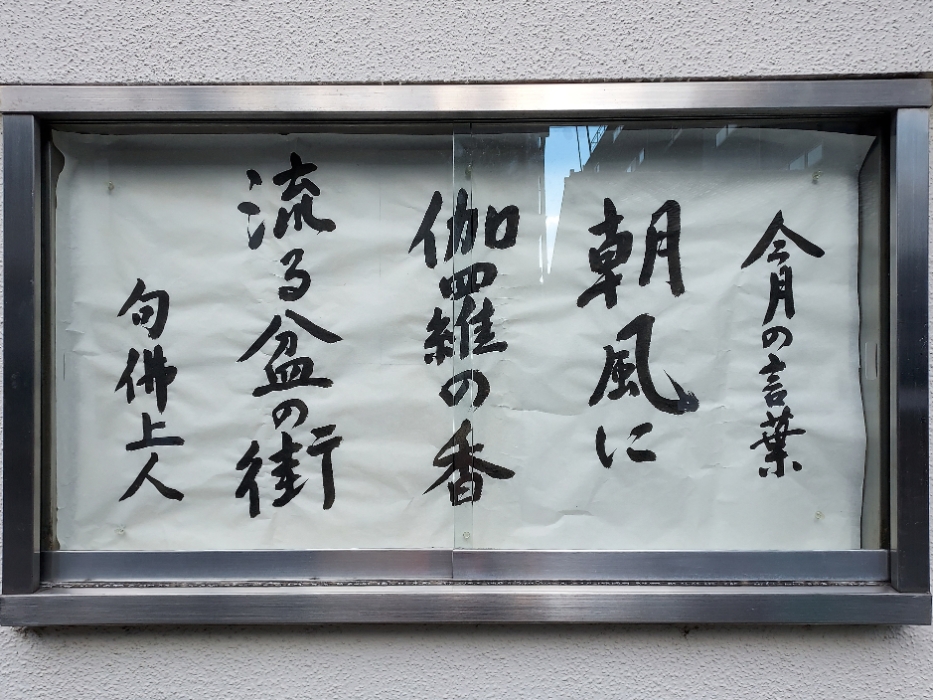 今月の言葉
朝風に
伽羅の香
流る盆の街
句佛上人